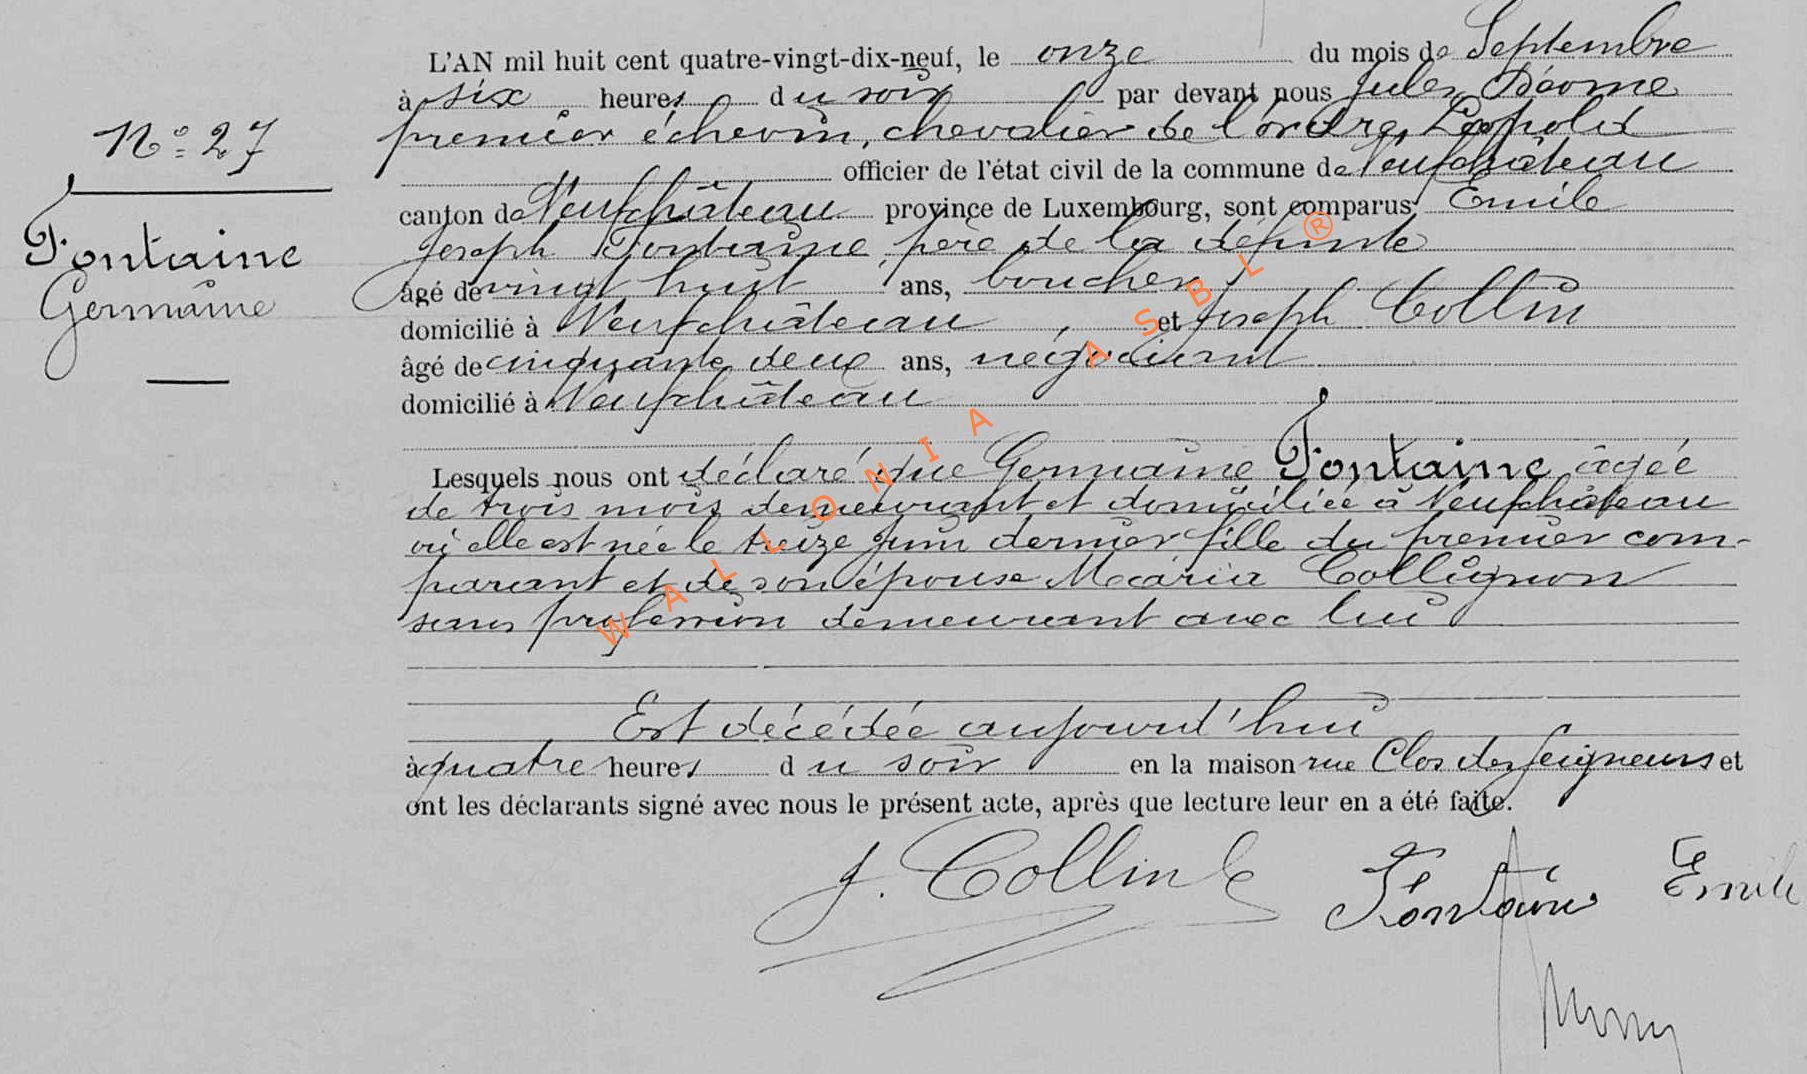 L'AN mil huit cent quatre-vingt-dix-neuf, le onze du mois de Septembre
à six heures du soir par devant nous Jules Déome
premier échevin, chevalier de l'ordre Léopold
officier de l'état civil de la commune de Neufchâteau
canton de Neufchâteau province de Luxembourg, sont comparus Emile
Joseph Fontaine, père de la défunte
âgé de vingt huit ans, boucher
domicilié à Neufchâteau, et Joseph Collin
âgé de cinquante deux ans, négociant
domicilié à Neufchâteau
Lesquels nous ont déclaré que Germaine Fontaine âgée
de trois mois demeurant et domiciliée à Neufchâteau
où elle est née le treize juin dernier fille du premier com-
parant et de son épouse Maria Collignon
sans profession demeurant avec lui
Est décédée aujourd'hui
à quatre heures du soir en la maison rue Clos des Seigneurs et
ont les déclarants signé avec nous le présent acte, après que lecture leur en a été faite.
J. Collin Fontaine Emile
N° 27
Fontaine
Germaine
WALLONIA ASBL ®